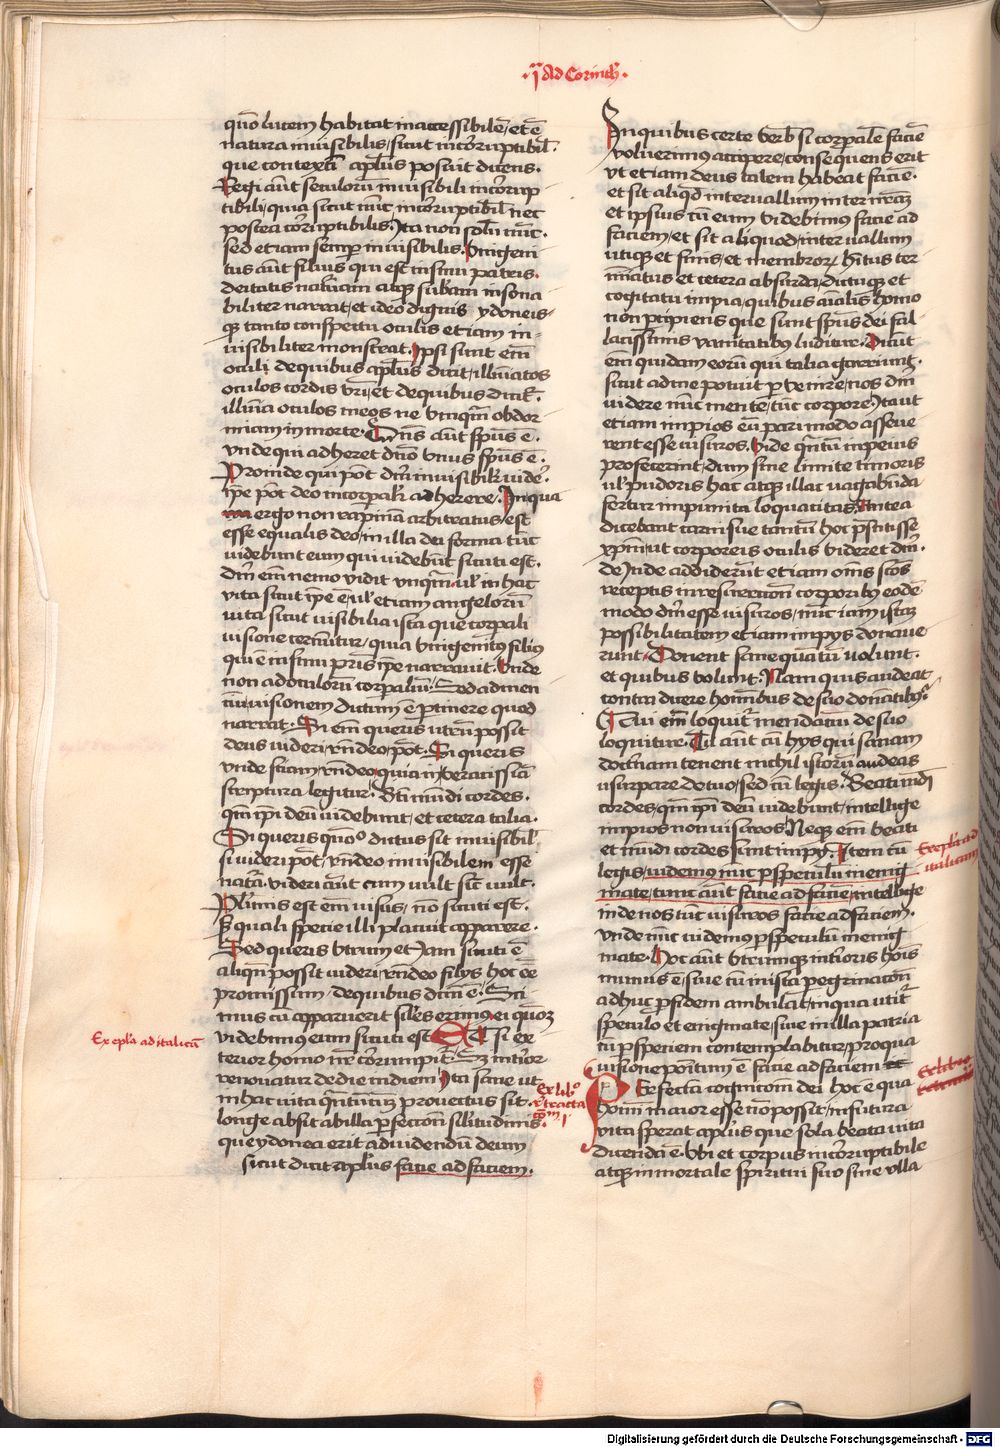 ·I Ad Corinth·
quo lucem habitat inaccessibile, et e
natura invisibilis, sicut incorruptibil.
que contexti aplus posuit dicens.
Regi aut seculorum invisibili incorrup
tibili, quia sicut nunc incorruptibil nec
postea corruptibilis. Ita non solu nunc.
sed et iam semper invisibilis. Unigeni
tus aut filius qui est in sinu patris.
deitatis naturam atque substam insona
biliter narrat, et ideo dignis ydoneis
que tanto conspectui oculis etiam in
visibiliter monstrat. Ipsi sunt em
oculi de quibus aplus dicit, illuiatos
oculos cordis vri, et de quibus dicit.
illuia oculos meos ne unqm obdor
miam in morte. Dns aut spus e.
unde qui adheret dno unus spus e.
Proinde qui pot dm invisibilr vide.
ipe pot deo incorpalr adherere. In qua
ergo non rapinam arbitratus est
esse equalis deo, in illa dei forma tuc
videbunt eum qui videbut sicuti est.
Dm em nemo vidit unqm, ul in hac
vita sicut ipe e, ul etiam angeloru
vita sicut visibilia ista que corpali
visione cernutur, quia unigenitus filius
qui e in sinu pris ipe narravit. Unde
non ad oculoru corpaliu. Sed ad men
tiu visionem dictum e ptinere quod
narrat. Si em queris utru possit
deus videri, rndeo, pot. Si queris
unde sciam, rndeo quia in veracissia
scriptura legitur. Bti mundi cordes.
qm ipi deu videbunt, et cetera talia.
Si queris quo dictus sit invisibil
si videri pot, rndeo invisibilem esse
natura. videri aut cum vult sic vult.
Plurimis est em visus, no sicuti est.
s quali specie illi placuit apparere.
Sed queris utrum et iam sicuti e
aliqn possit videri, rndeo filys hoc ee
promissum, de quibus dcm e. Sci
mus cu apparuerit siles erimus ei quom
videbimus eum sicuti est. Et si ex
terior homo nr corrumpit. Sz interior
renovatur de die in diem. Ita sane ut
in hac vita qntuscuq provectus sit.
longe absit ab illa pfeccoe silitudinis
que ydonea erit ad videndu deum
sicut dicit aplus facie ad faciem.
Ex epla ad italica
In quibus certe verb si corpale facie
voluerimus accipere, consequens erit
ut etiam deus talem habeat facie.
et sit aliqd intervallum inter nram
et ipsius cu eum videbimus facie ad
faciem, et sit aliquod intervallum
utique et finis, et membror hitus ter
minatus et cetera absurda, dictuque et
cogitatu impia, quibus aialis homo
non pcipiens que sunt spus dei fal
lacissimis vanitatibus luditur. Dicut
em quidam eoru qui talia garriunt.
sicut ad me potuit pvenire, nos dm
videre nunc mente, tuc corpore. Ita ut
etiam impios eu pari modo asseve
rent esse visuros. Vide qntu in peius
profecerint, dum sine limite timoris
ul pudoris hac atque illac vagabuda
fertur impunita loquacitas. Antea
dicebant carni sue tantu hoc pstitisse
xpm, ut corporeis oculis videret dm.
deinde addiderut etiam oms scos
receptis in resurreccone corporibus eode
modo dm esse visuros, nunc iam istam
possibilitatem etiam impys donave
runt. Donent sane quatu volunt.
et quibus volunt. Nam quis audeat
contradicere hominibus de suo donatibus
Qui em loquitr mendaciu de suo
loquitur. Tu aut cu hys qui sanam
doctriam tenent nichil istoru audeas
usurpare de tuo, sed cu legis. Beati mudi
cordes, qm ipi deu videbunt, intellige
impios non visuros. Neq em beati
et mudi cordes sunt impy. Item cu
legis, videmus nuc pspeculu in enig
mate, tunc aut facie ad facie, intellige
inde nos tuc visuros facie ad faciem.
unde nuc videmus pspeculu in enig
mate. Hoc aut utrumque interioris hois
munus e, sive cu in ista pegrinacoe
adhuc p fidem ambulat, in qua utitr
speculo et enigmate, sive in illa patria
cu pspeciem contemplabitur, pro qua
visione positum e facie ad faciem
Perfecta cognicom dei hoc e qua
homi maior esse no possit, in futura
vita sperat aplus que sola beata vita
dicenda e. Ubi et corpus incorruptibile
atque inmortale spiritui suo sine ulla
Ex epla ad
italicam
Ex libo
retracta
com I
Ex libro